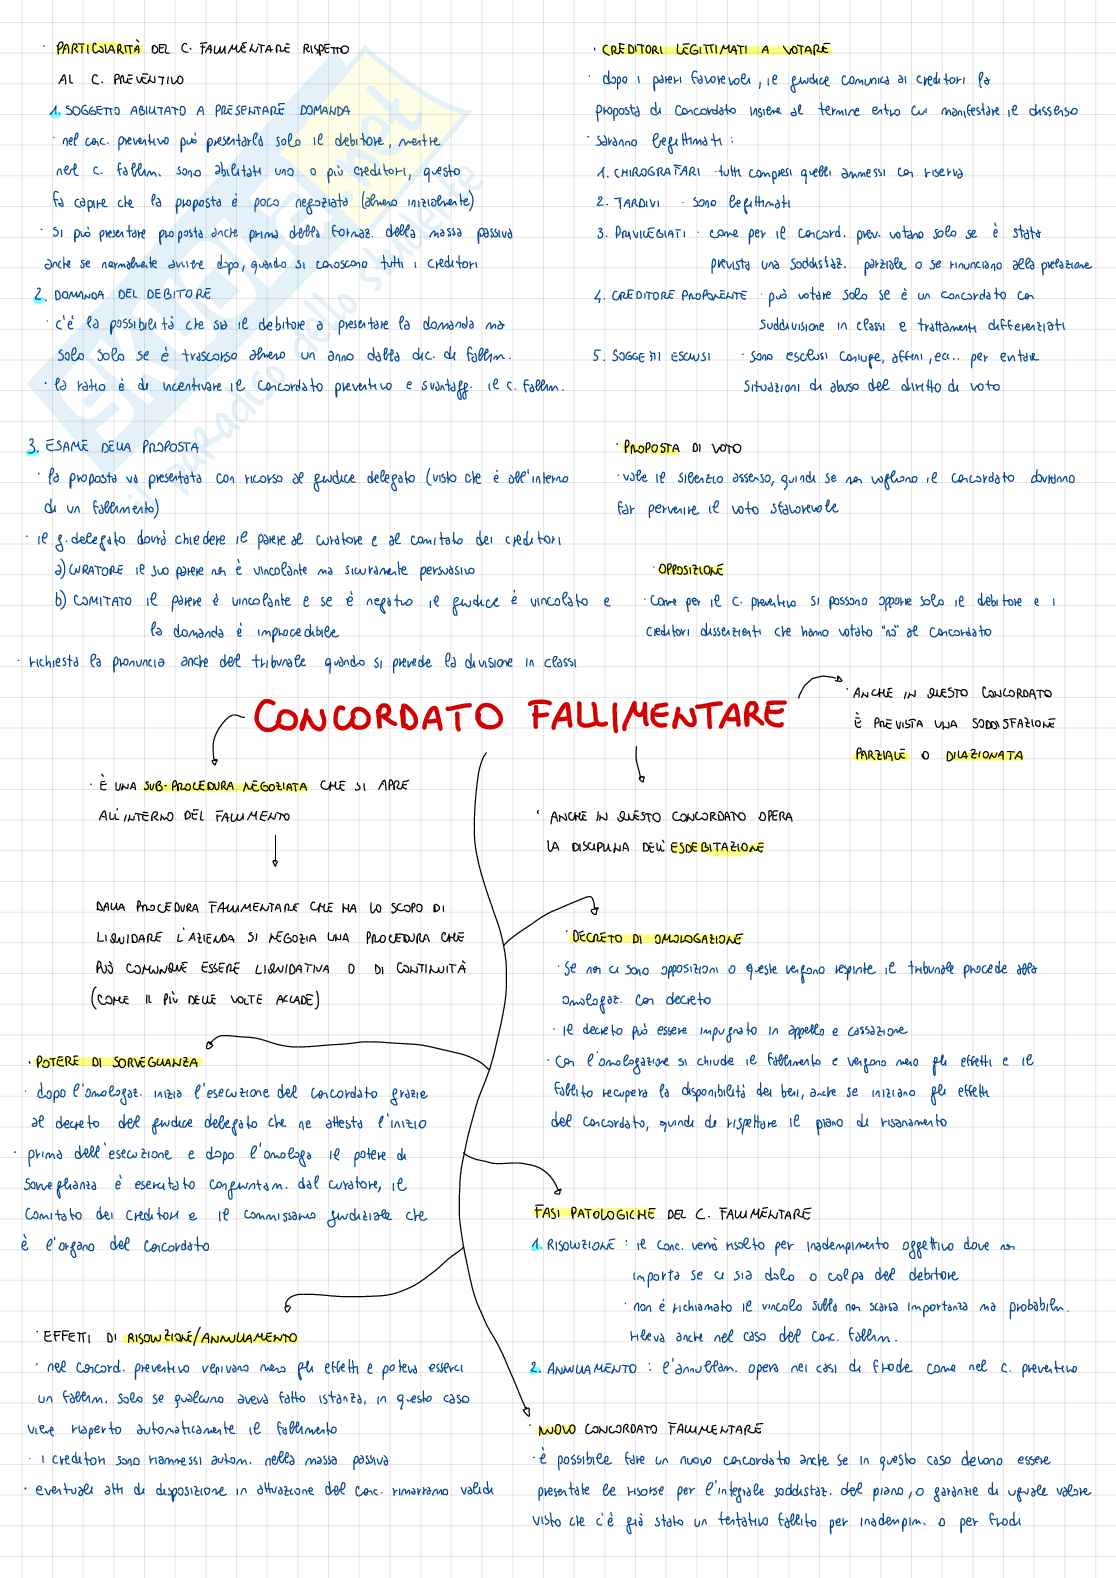 · PARTICOLARITÀ DEL C. FALLIMENTARE RISPETTO
AL C. PREVENTIVO
1. SOGGETTO ABILITATO A PRESENTARE DOMANDA
· nel conc. preventivo può presentarla solo il debitore, mentre
nel c. fallim. sono abilitati uno o più creditori, questo
fa capire che la proposta è poco negoziata (almeno inizialmente)
· si può presentare proposta anche prima della formaz. della massa passiva
anche se normalmente avviene dopo, quando si conoscono tutti i creditori
2. DOMANDA DEL DEBITORE
· c'è la possibilità che sia il debitore a presentare la domanda ma
solo solo se è trascorso almeno un anno dalla dic. di fallim.
· la ratio è di incentivare il concordato preventivo e svantagg. il c. fallim.
3. ESAME DELLA PROPOSTA
· la proposta va presentata con ricorso al giudice delegato (visto che è all'interno
di un fallimento)
· il g. delegato dovrà chiedere il parere al curatore e al comitato dei creditori
a) CURATORE il suo parere non è vincolante ma sicuramente persuasivo
b) COMITATO il parere è vincolante e se è negativo il giudice è vincolato e
la domanda è improcedibile
· richiesta la pronuncia anche del tribunale quando si prevede la divisione in classi
· CREDITORI LEGITTIMATI A VOTARE
· dopo i pareri favorevoli, il giudice comunica ai creditori la
proposta di concordato insieme al termine entro cui manifestare il dissenso
· saranno legittimati :
1. CHIROGRAFARI · tutti compresi quelli ammessi con riserva
2. TARDIVI · sono legittimati
3. PRIVILEGIATI · come per il concord. prev. votano solo se è stata
prevista una soddisfaz. parziale o se rinunciano alla prelazione
4. CREDITORE PROPONENTE · può votare solo se è un concordato con
suddivisione in classi e trattamenti differenziati
5. SOGGETTI ESCLUSI · sono esclusi coniuge, affini, ecc.. per evitare
situazioni di abuso del diritto di voto
· PROPOSTA DI VOTO
· vale il silenzio assenso, quindi se non vogliono il concordato dovranno
far pervenire il voto sfavorevole
· OPPOSIZIONE
· come per il c. preventivo si possono opporre solo il debitore e i
creditori dissenzienti che hanno votato "no" al concordato
CONCORDATO FALLIMENTARE
· ANCHE IN QUESTO CONCORDATO
È PREVISTA UNA SODDISFAZIONE
PARZIALE O DILAZIONATA
· È UNA SUB-PROCEDURA NEGOZIATA CHE SI APRE
ALL'INTERNO DEL FALLIMENTO
DALLA PROCEDURA FALLIMENTARE CHE HA LO SCOPO DI
LIQUIDARE L'AZIENDA SI NEGOZIA UNA PROCEDURA CHE
PUÒ COMUNQUE ESSERE LIQUIDATIVA O DI CONTINUITÀ
(COME IL PIÙ DELLE VOLTE ACCADE)
· ANCHE IN QUESTO CONCORDATO OPERA
LA DISCIPLINA DELL'ESDEBITAZIONE
· DECRETO DI OMOLOGAZIONE
· se non ci sono opposizioni o queste vengono respinte il tribunale procede alla
omologaz. con decreto
· il decreto può essere impugnato in appello e cassazione
· con l'omologazione si chiude il fallimento e vengono meno gli effetti e il
fallito recupera la disponibilità dei beni, anche se iniziano gli effetti
del concordato, quindi di rispettare il piano di risanamento
· POTERE DI SORVEGLIANZA
· dopo l'omologaz. inizia l'esecuzione del concordato grazie
al decreto del giudice delegato che ne attesta l'inizio
· prima dell'esecuzione e dopo l'omologa il potere di
sorveglianza è esercitato congiuntam. dal curatore, il
comitato dei creditori e il commissario giudiziale che
è l'organo del concordato
FASI PATOLOGICHE DEL C. FALLIMENTARE
1. RISOLUZIONE : il conc. verrà risolto per inadempimento oggettivo dove non
importa se ci sia dolo o colpa del debitore
· non è richiamato il vincolo sulla non scarsa importanza ma probabilm.
rileva anche nel caso del conc. fallim.
2. ANNULLAMENTO : l'annullam. opera nei casi di frode come nel c. preventivo
· EFFETTI DI RISOLUZIONE/ANNULLAMENTO
· nel concord. preventivo venivano meno gli effetti e poteva esserci
un fallim. solo se qualcuno aveva fatto istanza, in questo caso
viene riaperto automaticamente il fallimento
· i creditori sono riammessi autom. nella massa passiva
· eventuali atti di disposizione in attuazione del conc. rimarranno validi
· NUOVO CONCORDATO FALLIMENTARE
· è possibile fare un nuovo concordato anche se in questo caso devono essere
presentate le risorse per l'integrale soddisfaz. del piano, o garanzie di uguale valore
visto che c'è già stato un tentativo fallito per inadempim. o per frodi